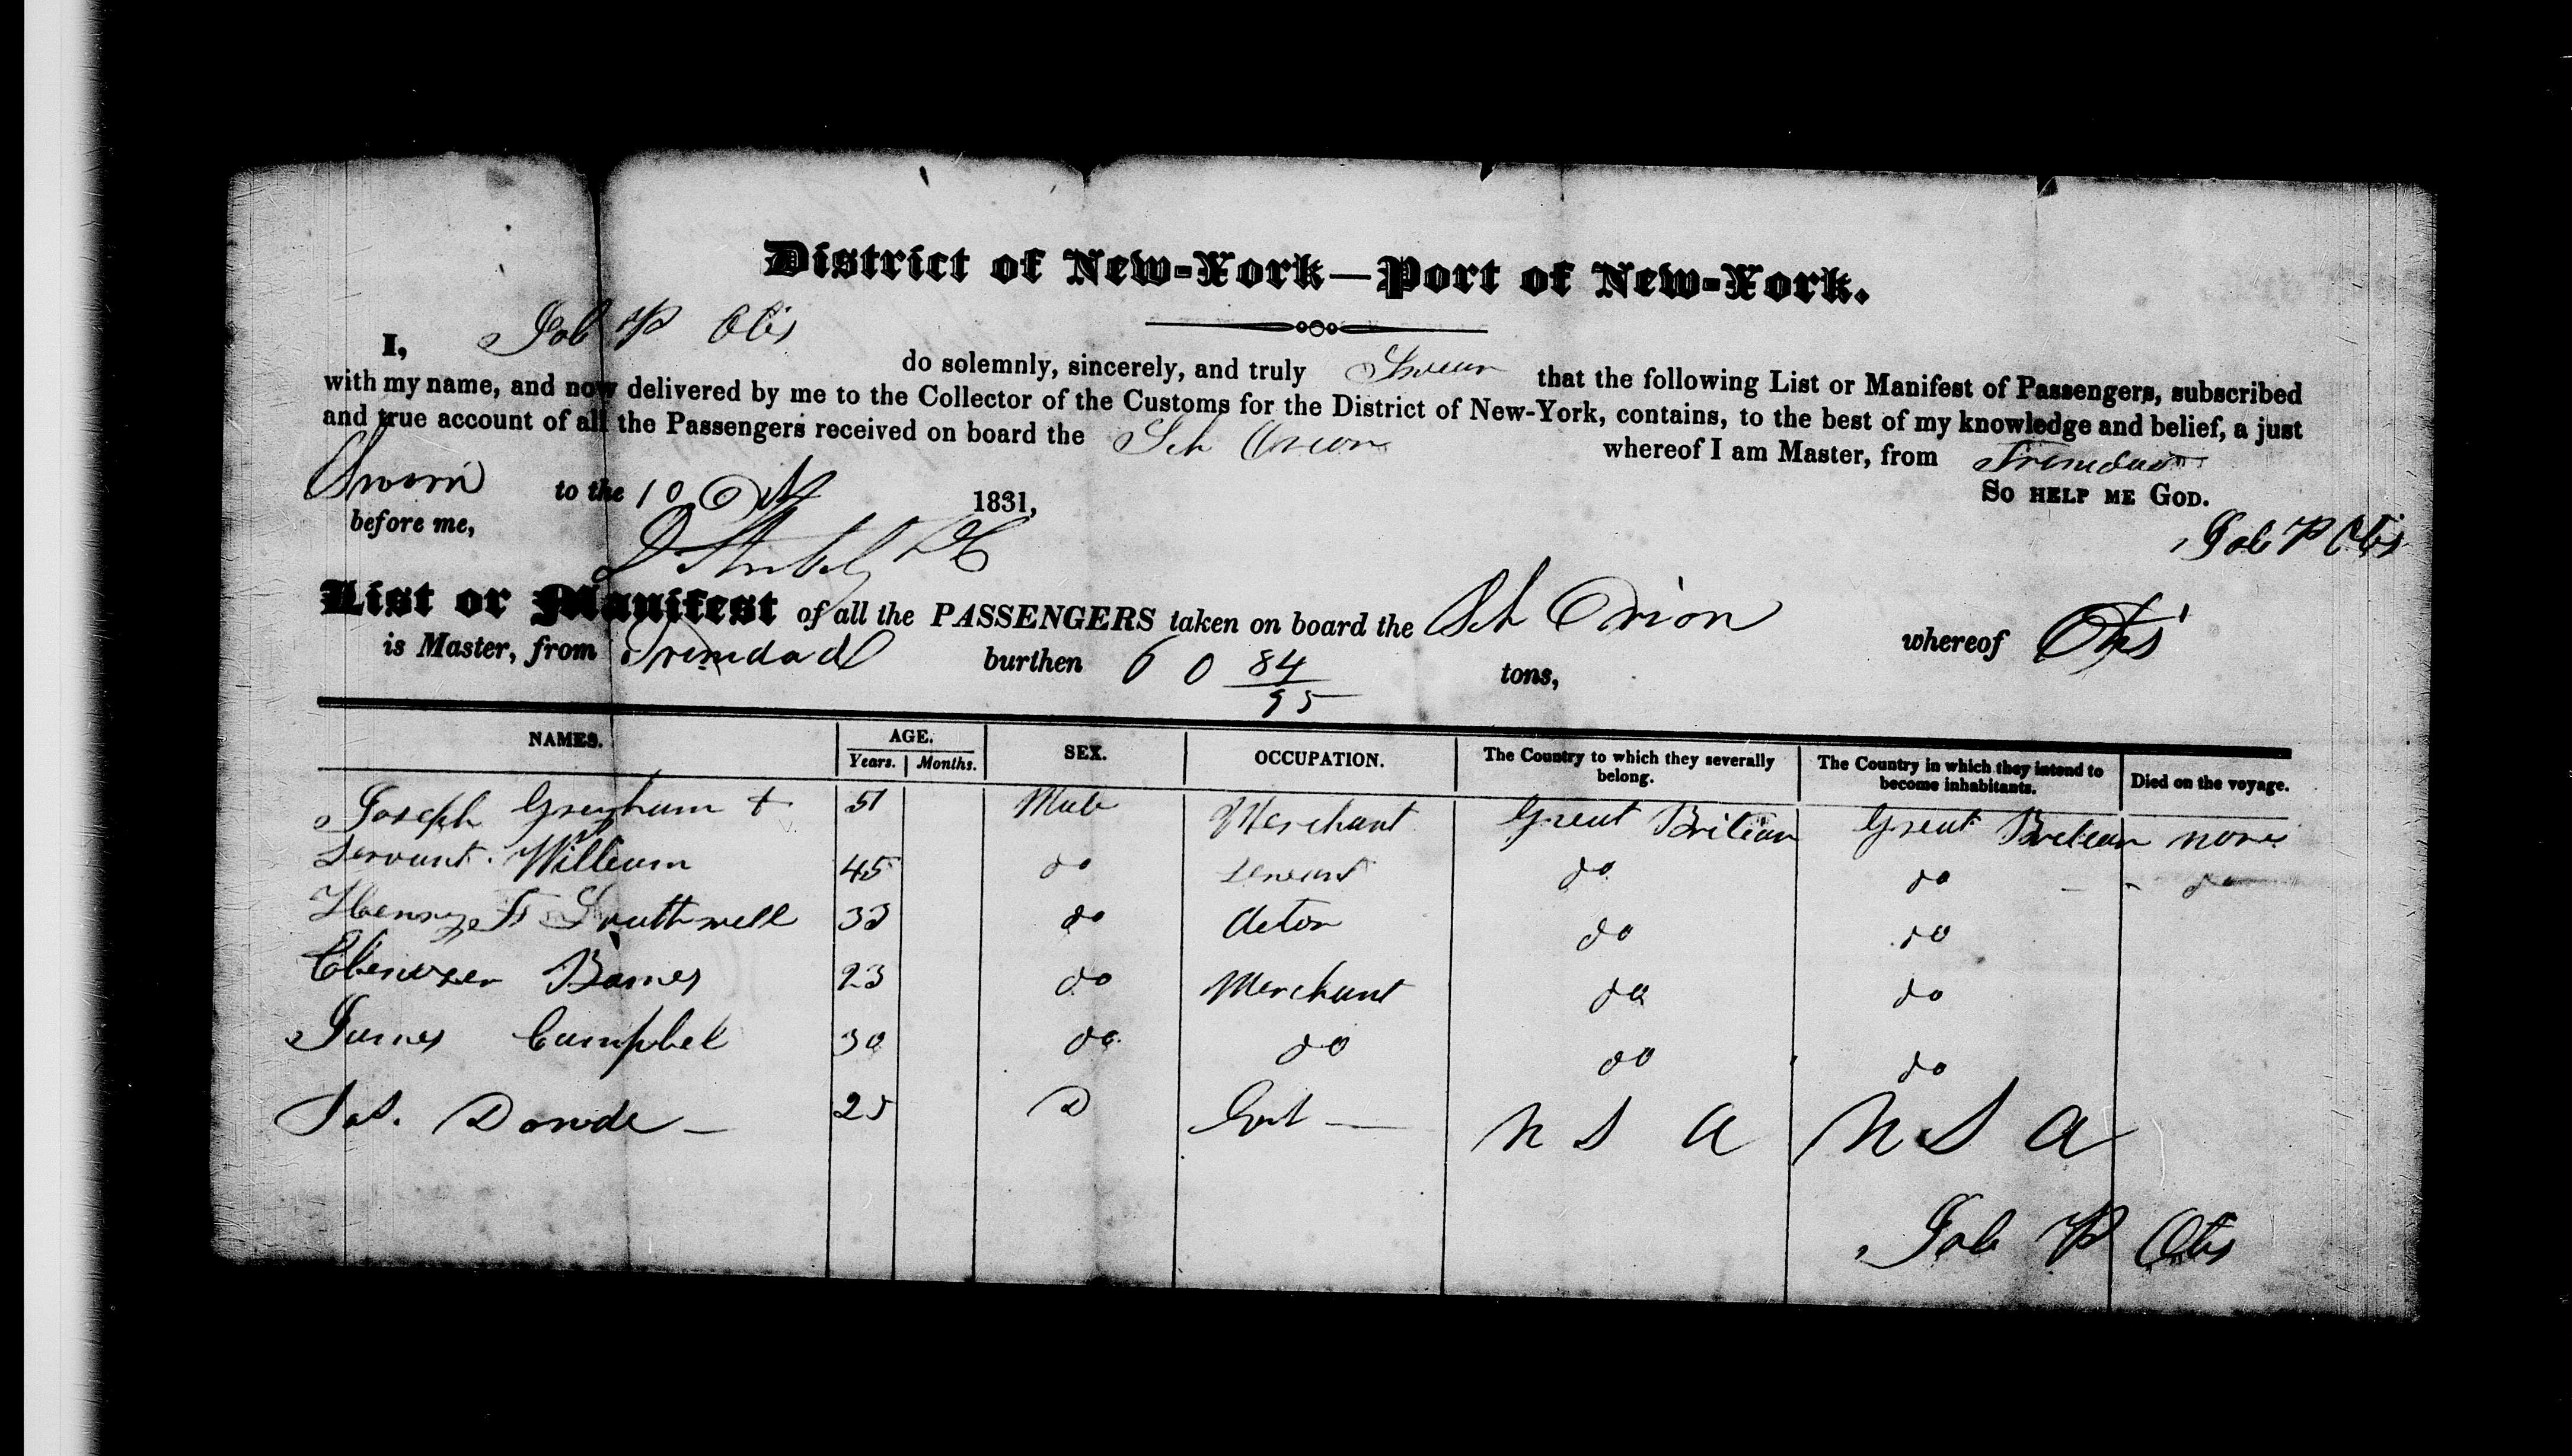 District of New-York—Port of New-York.
I, Job P Otis do solemnly, sincerely, and truly Swear that the following List or Manifest of Passengers, subscribed
with my name, and now delivered by me to the Collector of the Customs for the District of New-York, contains, to the best of my knowledge and belief, a just
and true account of all the Passengers received on board the Sch Orion whereof I am Master, from Trinidad
Sworn to the 10 Oct 1831, So HELP ME GOD.
before me, Job P Otis
List or Manifest of all the PASSENGERS taken on board the Sch Orion whereof Otis
is Master, from Trinidad burthen 60 84/95 tons,
NAMES. AGE. Years. Months. SEX. OCCUPATION. The Country to which they severally belong. The Country in which they intend to become inhabitants. Died on the voyage.
Joseph Greyham + 51 Male Merchant Great Britian Great Britian none
Servant William 45 do servant do do do
Henry Southwell 33 do Actor do do
Ebenezer Barnes 23 do Merchant do do
James Campbel 30 do do do do
Jas. Dowde 25 D U S A U S A
Job P Otis